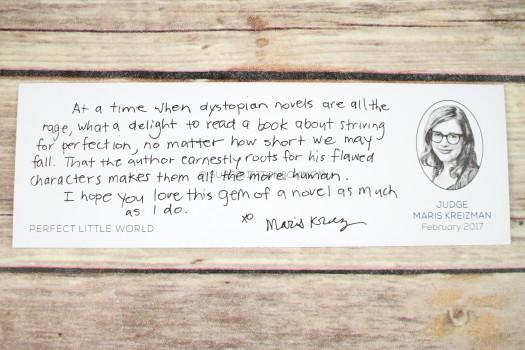 At a time when dystopian novels are all the
rage, what a delight to read a book about striving
for perfection, no matter how short we may
fall. That the author earnestly roots for his flawed
characters makes them all the more human.
I hope you love this gem of a novel as much
as I do.
xo
Maris Kreiz
PERFECT LITTLE WORLD
JUDGE
MARIS KREIZMAN
February 2017